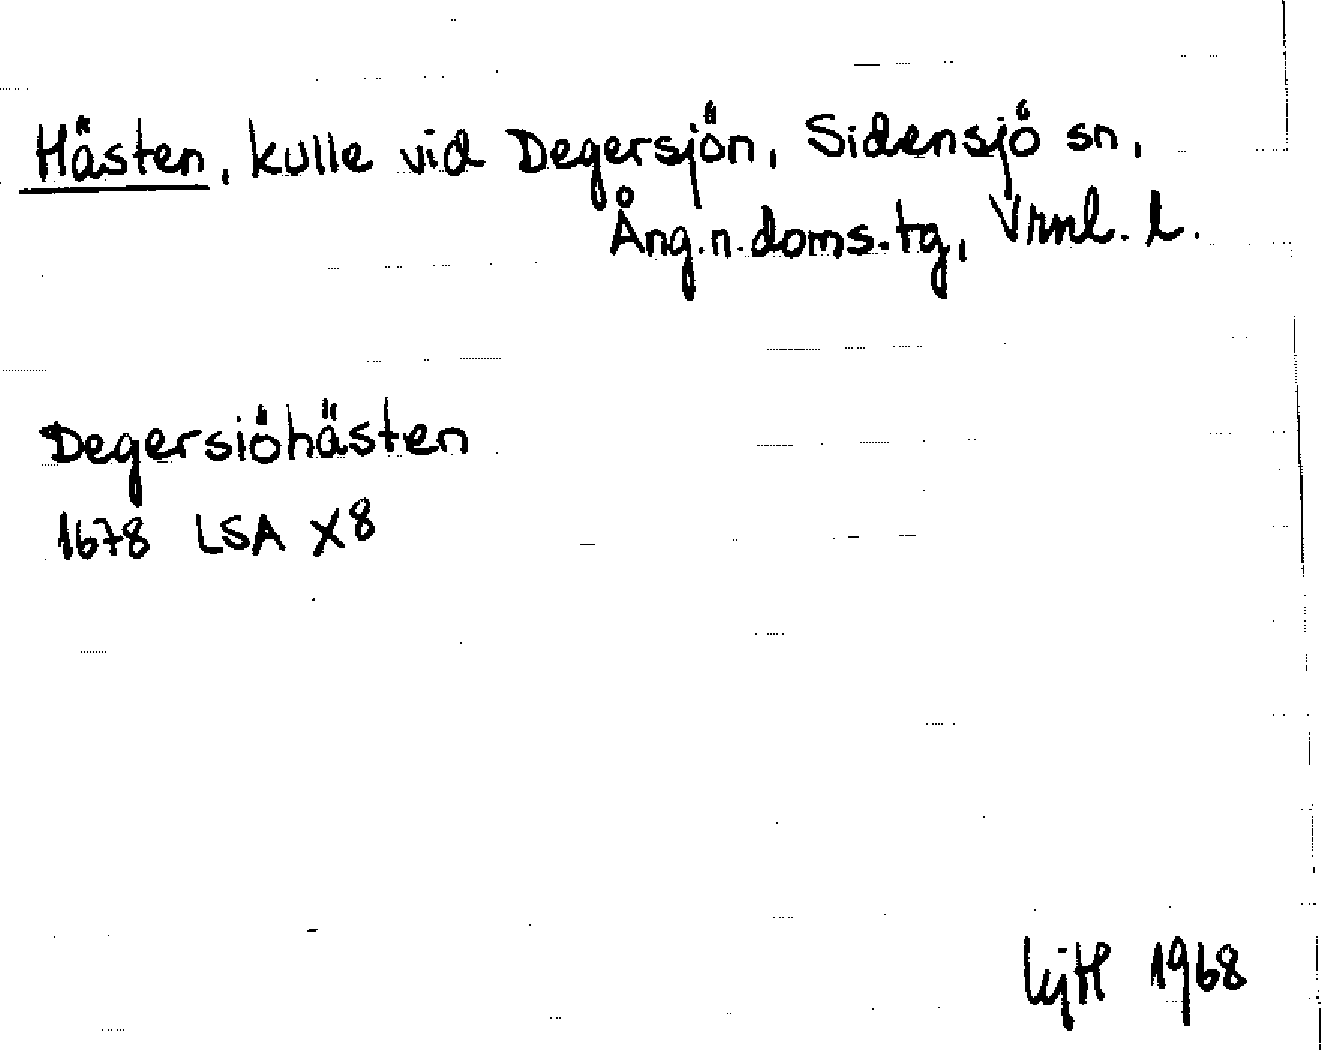 Hästen, kulle vid Degersjön, Sidensjö sn,
Ång.n.doms.tg, Vrnl. l.
Degersiöhästen
1678 LSA X8
1968